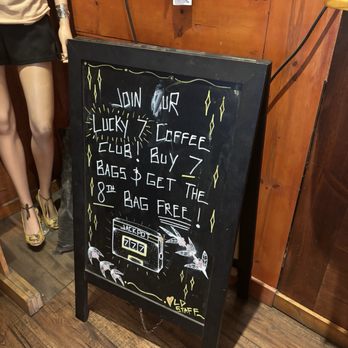 JOIN OUR
LUCKY 7 COFFEE
CLUB! BUY 7
BAGS & GET THE
8TH BAG FREE!
JACKPOT
777
LD
STAFF